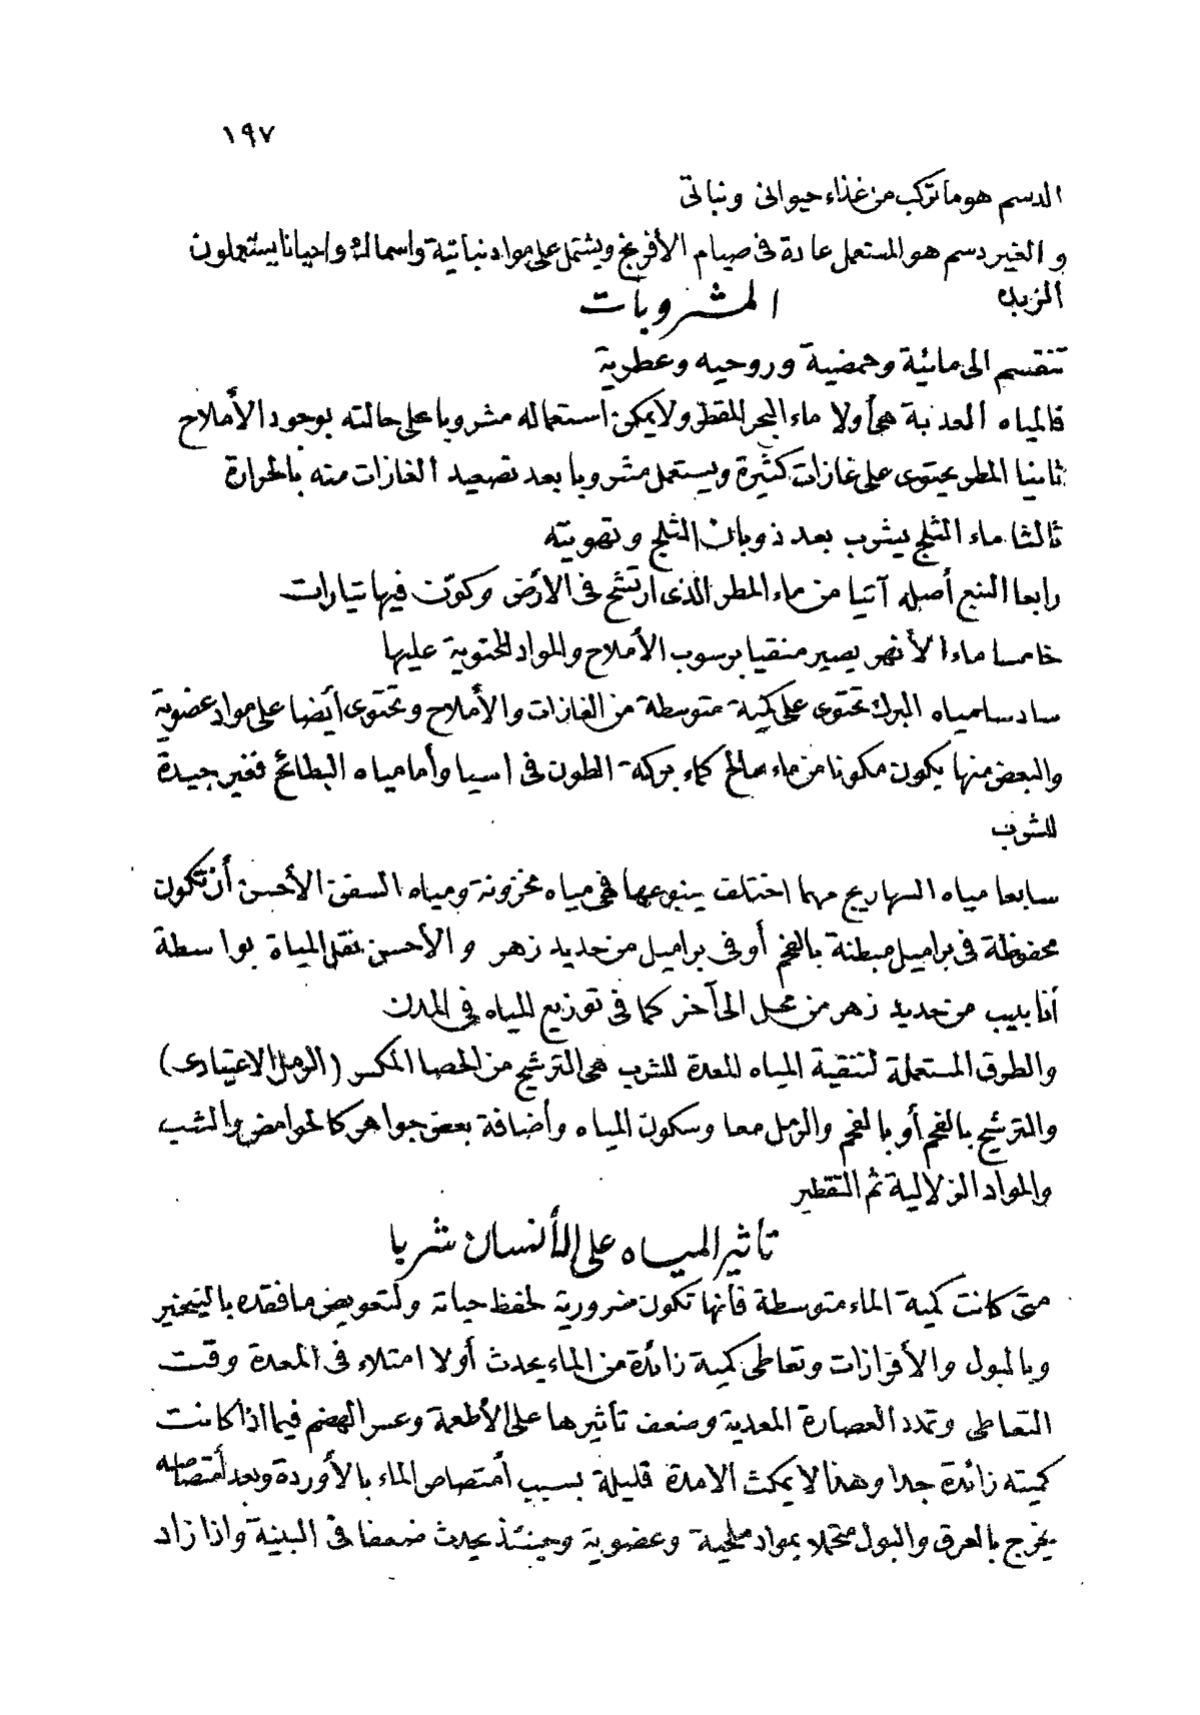 ١٩٧
الدسم هو ما تركب من غذاء حيوانى ونباتى
و الغير دسم هو المستعمل عادة فى صيام الأفرنج ويشتمل على مواد نباتية واسماك واحيانا يستعملون
الزبده
المشروبات
تنقسم الى مائية وحمضية وروحيه وعطرية
فالمياه العذبة هى أولا ماء البحر المقطر ولا يمكن أستعماله مشروبا على حالته بوجود الأملاح
ثانيا المطر يحتوى على غازات كثيرة ويستعمل مشروبا بعد تصعيد الغازات منه بالحرارة
ثالثا ماء الثلج يشرب بعد ذوبان الثلج وتهويته
رابعا النبع أصله آتيا من ماء المطر الذى ارتشح فى الأرض وكوّن فيها تيارات
خامسا ماء الأنهر يصير منقيا برسوب الأملاح والمواد المحتوية عليها
سادسا مياه البرك تحتوى على كمية متوسطة من الغازات والأملاح وتحتوى أيضا على مواد عضوية
والبعض منها يكون مكونا من ماء مالح كماء بركة الطون فى اسيا وأما مياه البطائح فغير جيدة
للشرب
سابعا مياه السهاريج مهما اختلف ينبوعها فهى مياه مخزونة ومياه السفن الأحسن أن تكون
محفوظة فى براميل مبطنة بالفحم أو فى براميل من حديد زهر و الأحسن نقل المياة بواسطة
أنابيب من حديد زهر من محل الى آخر كما فى توزيع المياه فى المدن
والطرق المستعملة لتنقية المياه المعدة للشرب هى الترشيح من الحصا المكسر (الرمل الاعتيادى)
والترشيح بالفحم أو بالفحم والرمل معا وسكون المياه وأضافة بعض جواهر كالحوامض والشب
والمواد الزلالية ثم التقطير
تأثير المياه على الأنسان شربا
متى كانت كمية الماء متوسطة فأنها تكون ضرورية لحفظ حياته ولتعويض ما فقده بالتبخير
وبالبول والأفرازات وتعاطى كمية زائدة من الماء يحدث أولا امتلاء فى المعدة وقت
التعاطى وتمدد العصارة المعدية وضعف تأثيرها على الأطعمة وعسر الهضم فيما اذا كانت
كميته زائدة جدا وهذا لا يمكث الا مدة قليلة بسبب أمتصاص الماء بالأوردة وبعد أمتصاصه
يخرج بالعرق والبول متحملا بمواد ملحية وعضوية وحينئذ يحدث ضعفا فى البنية واذا زاد